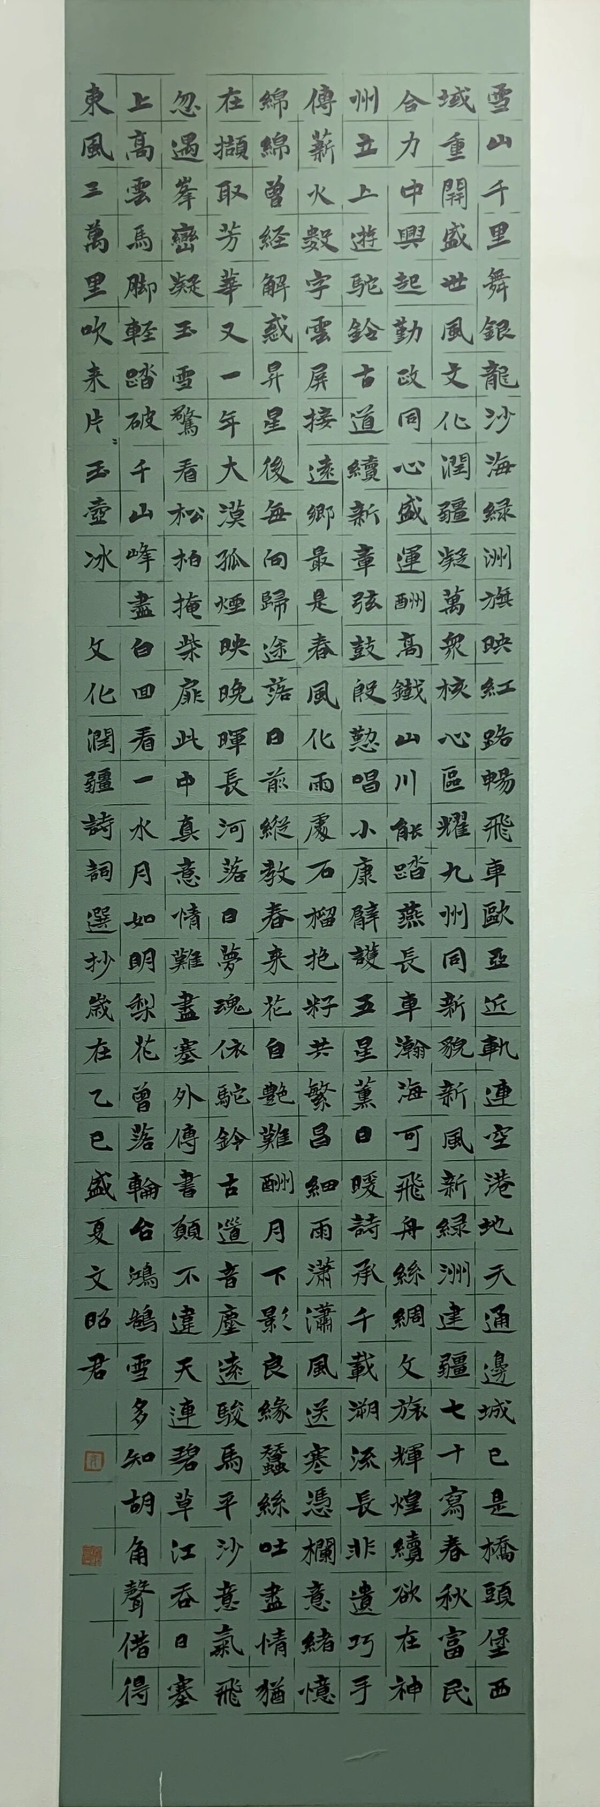 雪山千里舞銀龍沙海緑洲旗映紅路暢飛車歐亞近軌連空港地天通邊城已是橋頭堡西
域重開盛世風文化潤疆凝萬衆核心區耀九州同新貌新風新緑洲建疆七十寫春秋富民
合力中興起勤政同心盛運酬高鐵山川能踏燕長車瀚海可飛舟絲綢文旅輝煌續欲在神
州立上遊駝鈴古道續新章弦鼓殷懃唱小康辭護五星薰日暖詩承千載溯流長非遺巧手
傳薪火數字雲屏接遠鄉最是春風化雨處石榴抱籽共繁昌細雨瀟瀟風送寒憑欄意緒憶
綿綿曾經解惑昇星後每向歸途落日前縱教春来花自艷難酬月下影良緣蠶絲吐盡情猶
在擷取芳華又一年大漠孤煙映晚暉長河落日夢魂依駝鈴古道音塵遠駿馬平沙意氣飛
忽遇峯巒凝玉雪驚看松柏掩柴扉此中真意情難盡塞外傳書願不違天連碧草江吞日塞
上高雲馬脚輕踏破千山峰盡白回看一水月如明梨花曾落輪台鴻鵠雪多知胡角聲借得
東風三萬里吹来片玉壺冰 文化潤疆詩詞選抄歲在乙巳盛夏文昭君